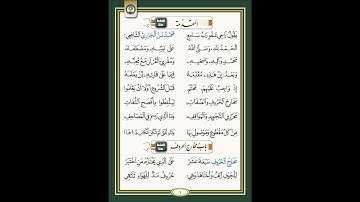 المُقَدِّمَة
يَقُولُ رَاجِي عَفْوِ رَبٍّ سَامِعِ مُحَمَّدُ بْنُ الْجَزَرِيِّ الشَّافِعِي
الْحَمْدُ لِلَّهِ وَصَلَّى اللَّهُ عَلَى نَبِيِّهِ وَمُصْطَفَاهُ
مُحَمَّدٍ وَآلِهِ وَصَحْبِهِ وَمُقْرِئِ الْقُرْآنِ مَعْ مُحِبِّهِ
وَبَعْدُ إِنَّ هَذِهِ مُقَدِّمَهْ فِيمَا عَلَى قَارِئِهِ أَنْ يَعْلَمَهْ
إِذْ وَاجِبٌ عَلَيْهِمُ مُحَتَّمُ قَبْلَ الشُّرُوعِ أَوَّلًا أَنْ يَعْلَمُوا
مَخَارِجَ الْحُرُوفِ وَالصِّفَاتِ لِيَلْفِظُوا بِأَفْصَحِ اللُّغَاتِ
مُحَرِّرِي التَّجْوِيدِ وَالْمَوَاقِفِ وَمَا الَّذِي رُسِمَ فِي الْمَصَاحِفِ
مِنْ كُلِّ مَقْطُوعٍ وَمَوْصُولٍ بِهَا وَتَاءِ أُنْثَى لَمْ تَكُنْ تُكْتَبْ بِهَا
بَابُ مَخَارِجِ الْحُرُوفِ
مَخَارِجُ الْحُرُوفِ سَبْعَةَ عَشَرْ عَلَى الَّذِي يَخْتَارُهُ مَنِ اخْتَبَرْ
لِلْجَوْفِ أَلِفٌ وَأُخْتَاهَا وَهِي حُرُوفُ مَدٍّ لِلْهَوَاءِ تَنْتَهِي
١